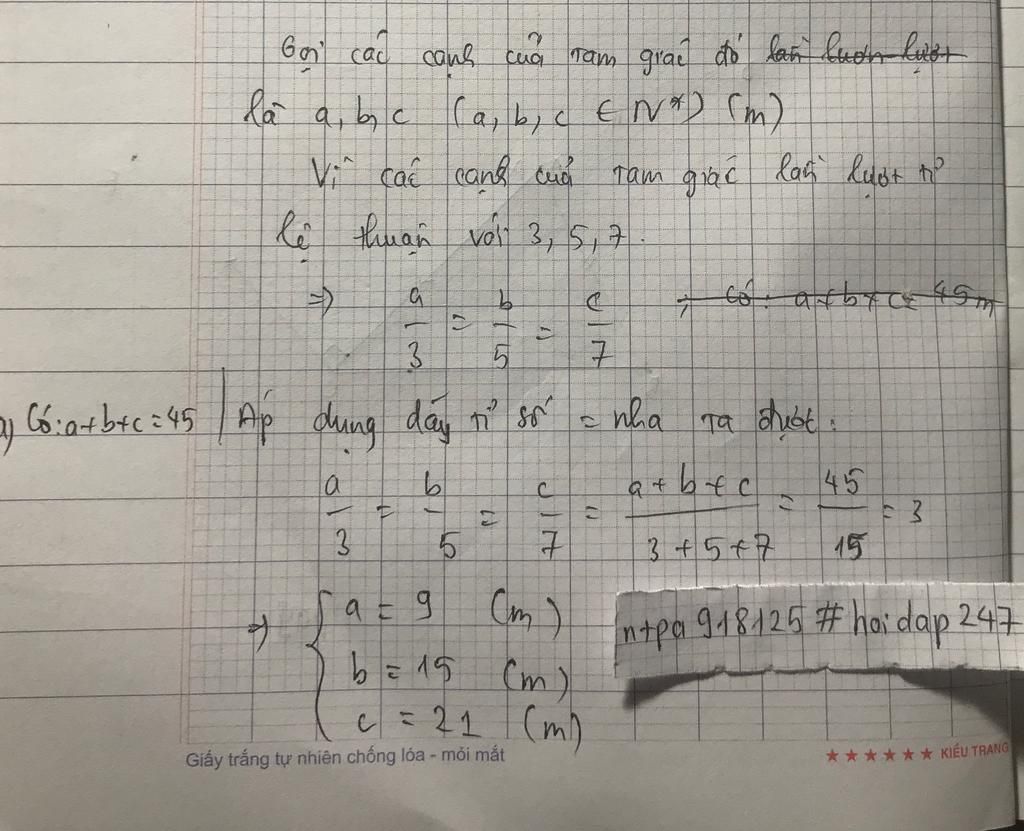 Gọi các cạnh của tam giác đó lần lươn lượt
là a, b, c (a, b, c ∈ N*) (m)
Vì các cạnh của tam giác lần lượt tỉ
lệ thuận với 3, 5, 7.
=> a/3 = b/5 = c/7 ; có: a+b+c = 45m
a) Có: a+b+c = 45 | Áp dụng dãy tỉ số = nha ta được:
a/3 = b/5 = c/7 = a+b+c/3+5+7 = 45/15 = 3
=> { a = 9 (m)
b = 15 (m)
c = 21 (m)
ntpa918125 # hoidap247
Giấy trắng tự nhiên chống lóa - mỏi mắt
★ ★ ★ ★ ★ ★ KIỀU TRANG